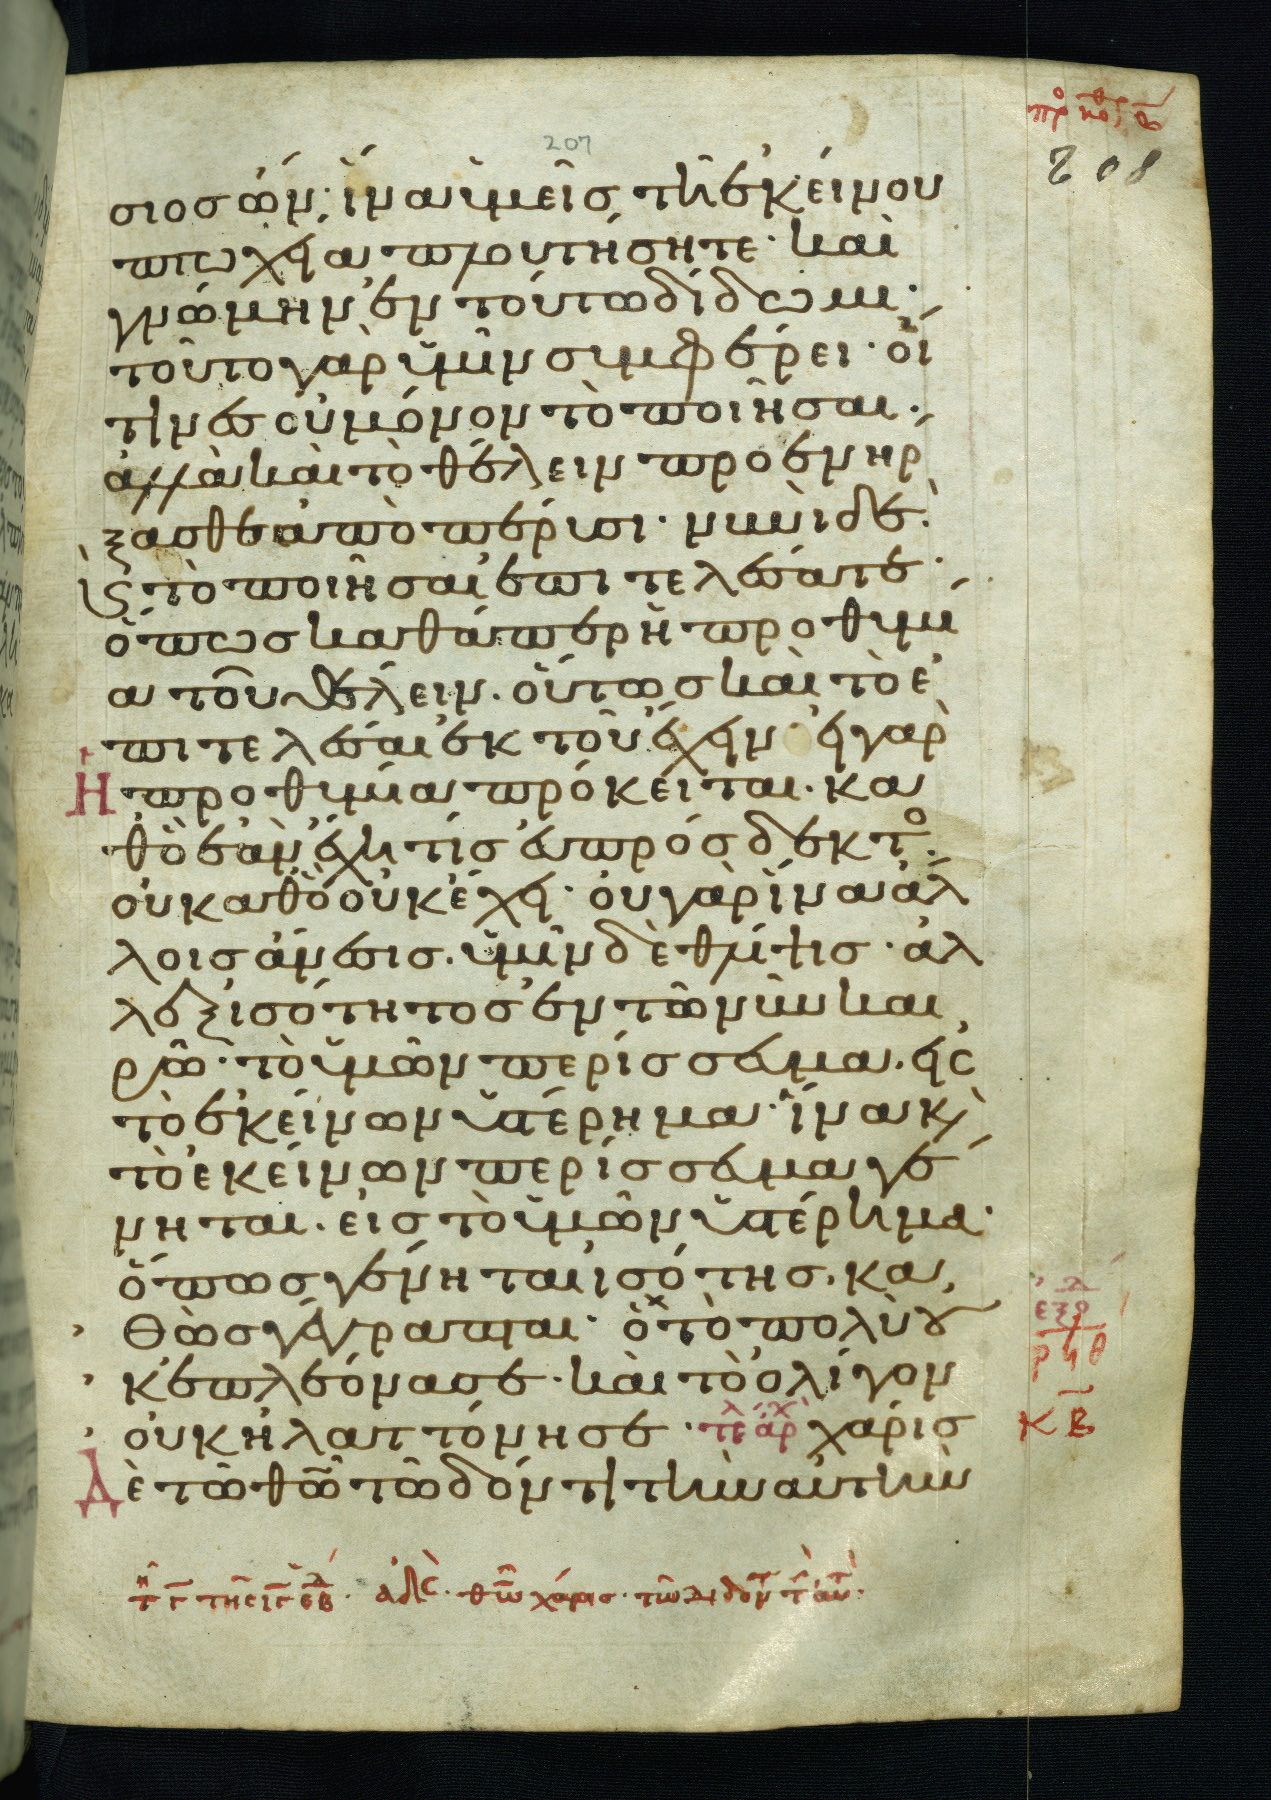 207
208
σιοσ ὤν· ἵνα ὑμεῖσ τῆ ἐκείνου
πτωχεία πλουτήσητε· καὶ
γνώμην ἐν τούτω δίδωμι·
τοῦτο γὰρ ὑμῖν συμφέρει· οἵ
τινεσ οὐ μόνον τὸ ποιῆσαι·
ἀλλὰ καὶ τὸ θέλειν προενήρ
ξασθε ἀπὸ πέρυσι· νυνὶ δὲ
κ(αὶ) τὸ ποιῆσαι ἐπιτελέσατε·
ὅπωσ καθάπερ ἡ προθυμί
α τοῦ θέλειν· οὕτωσ καὶ τὸ ἐ
πιτελέσαι ἐκ τοῦ ἔχειν· εἰ γὰρ
Ἡ προθυμία πρόκειται· κα
θὸ ἐὰν ἔχη τίσ εὐπρόσδεκτο·
οὐ καθὸ οὐκ ἔχει· οὐ γὰρ ἵνα ἄλ
λοισ ἄνεσισ· ὑμῖν δὲ θλίψισ· ἀλ
λ' ἐξ ἰσότητοσ ἐν τῶ νῦν και
ρῶ· τὸ ὑμῶν περίσσευμα· εἰς
τὸ ἐκείνων ὑστέρημα· ἵνα κ(αὶ)
τὸ ἐκείνων περίσσευμα γέ
νηται· εἰσ τὸ ὑμῶν ὑστέρημα·
ὅπωσ γένηται ἰσότησ· κα
Θὼσ γέγραπται· ὁ τὸ πολὺ οὐ
κ ἐπλεόνασε· καὶ τὸ ὀλίγον
οὐκ ἠλαττόνησε· τέλ ἀρχ χάρισ
Δὲ τῶ θῶ τῶ δόντι τὴν αὐτὴν
ρϟθ
κβ
ἀδε· θῶ χάρισ· τῶ διδόντ τ αὐτ·